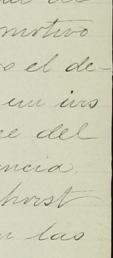 motivo
el de-
un ins
del
encia.
horst
las